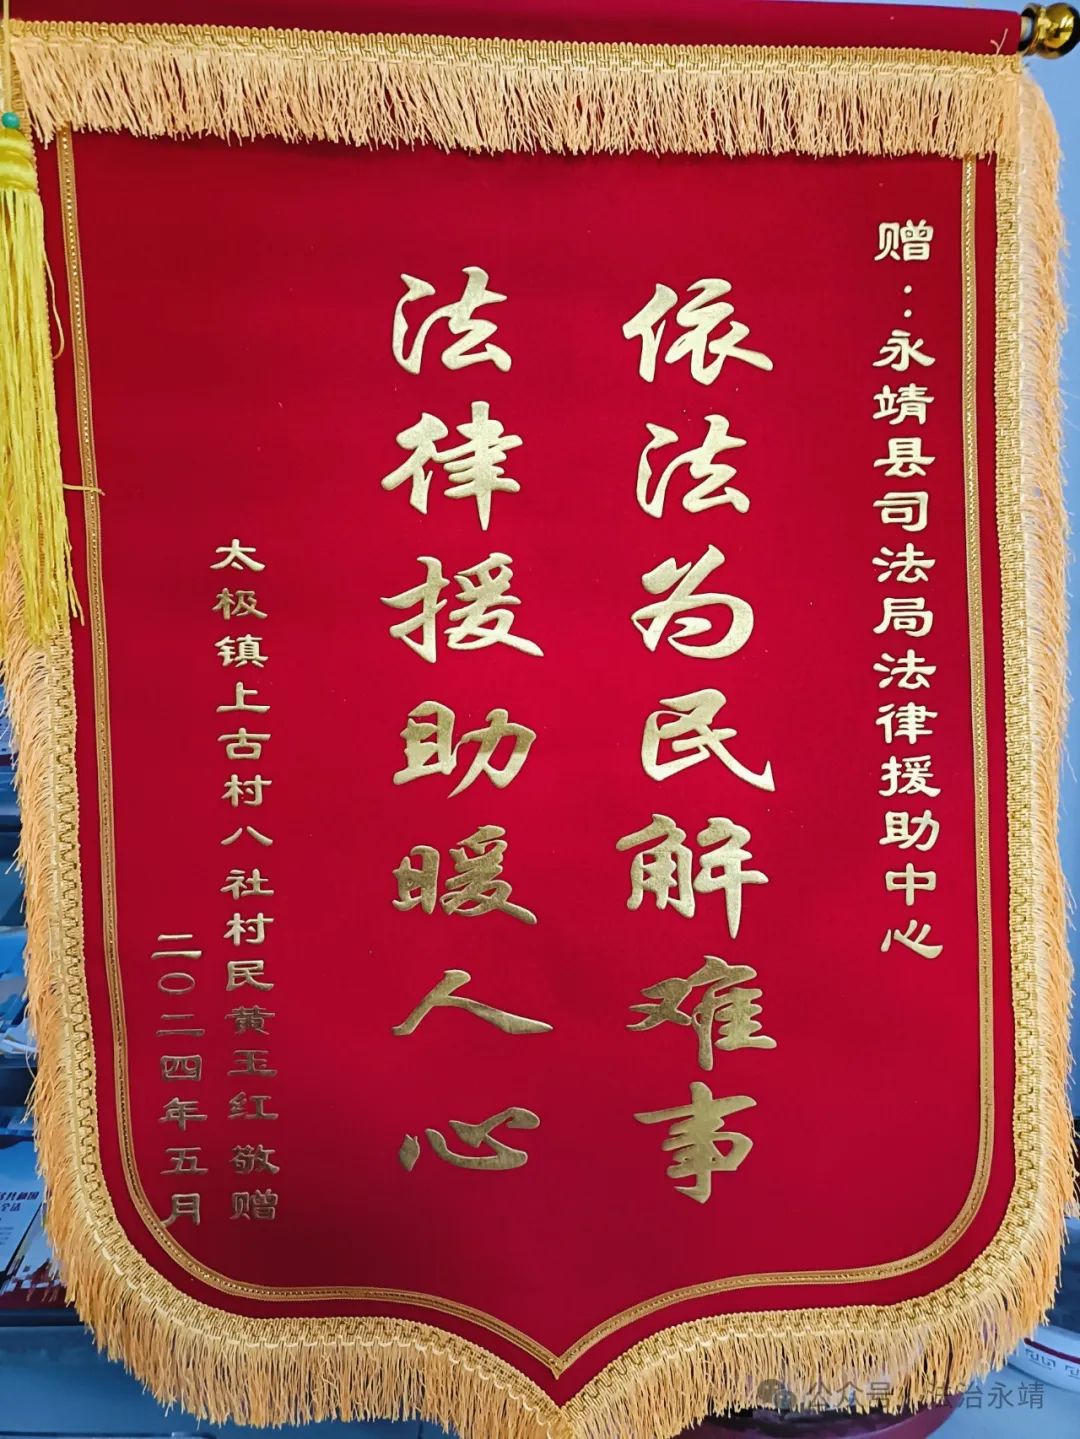 赠：永靖县司法局法律援助中心
依法为民解难事
法律援助暖人心
太极镇上古村八社村民黄玉红 敬赠
二〇二四年五月
公众号 法治永靖